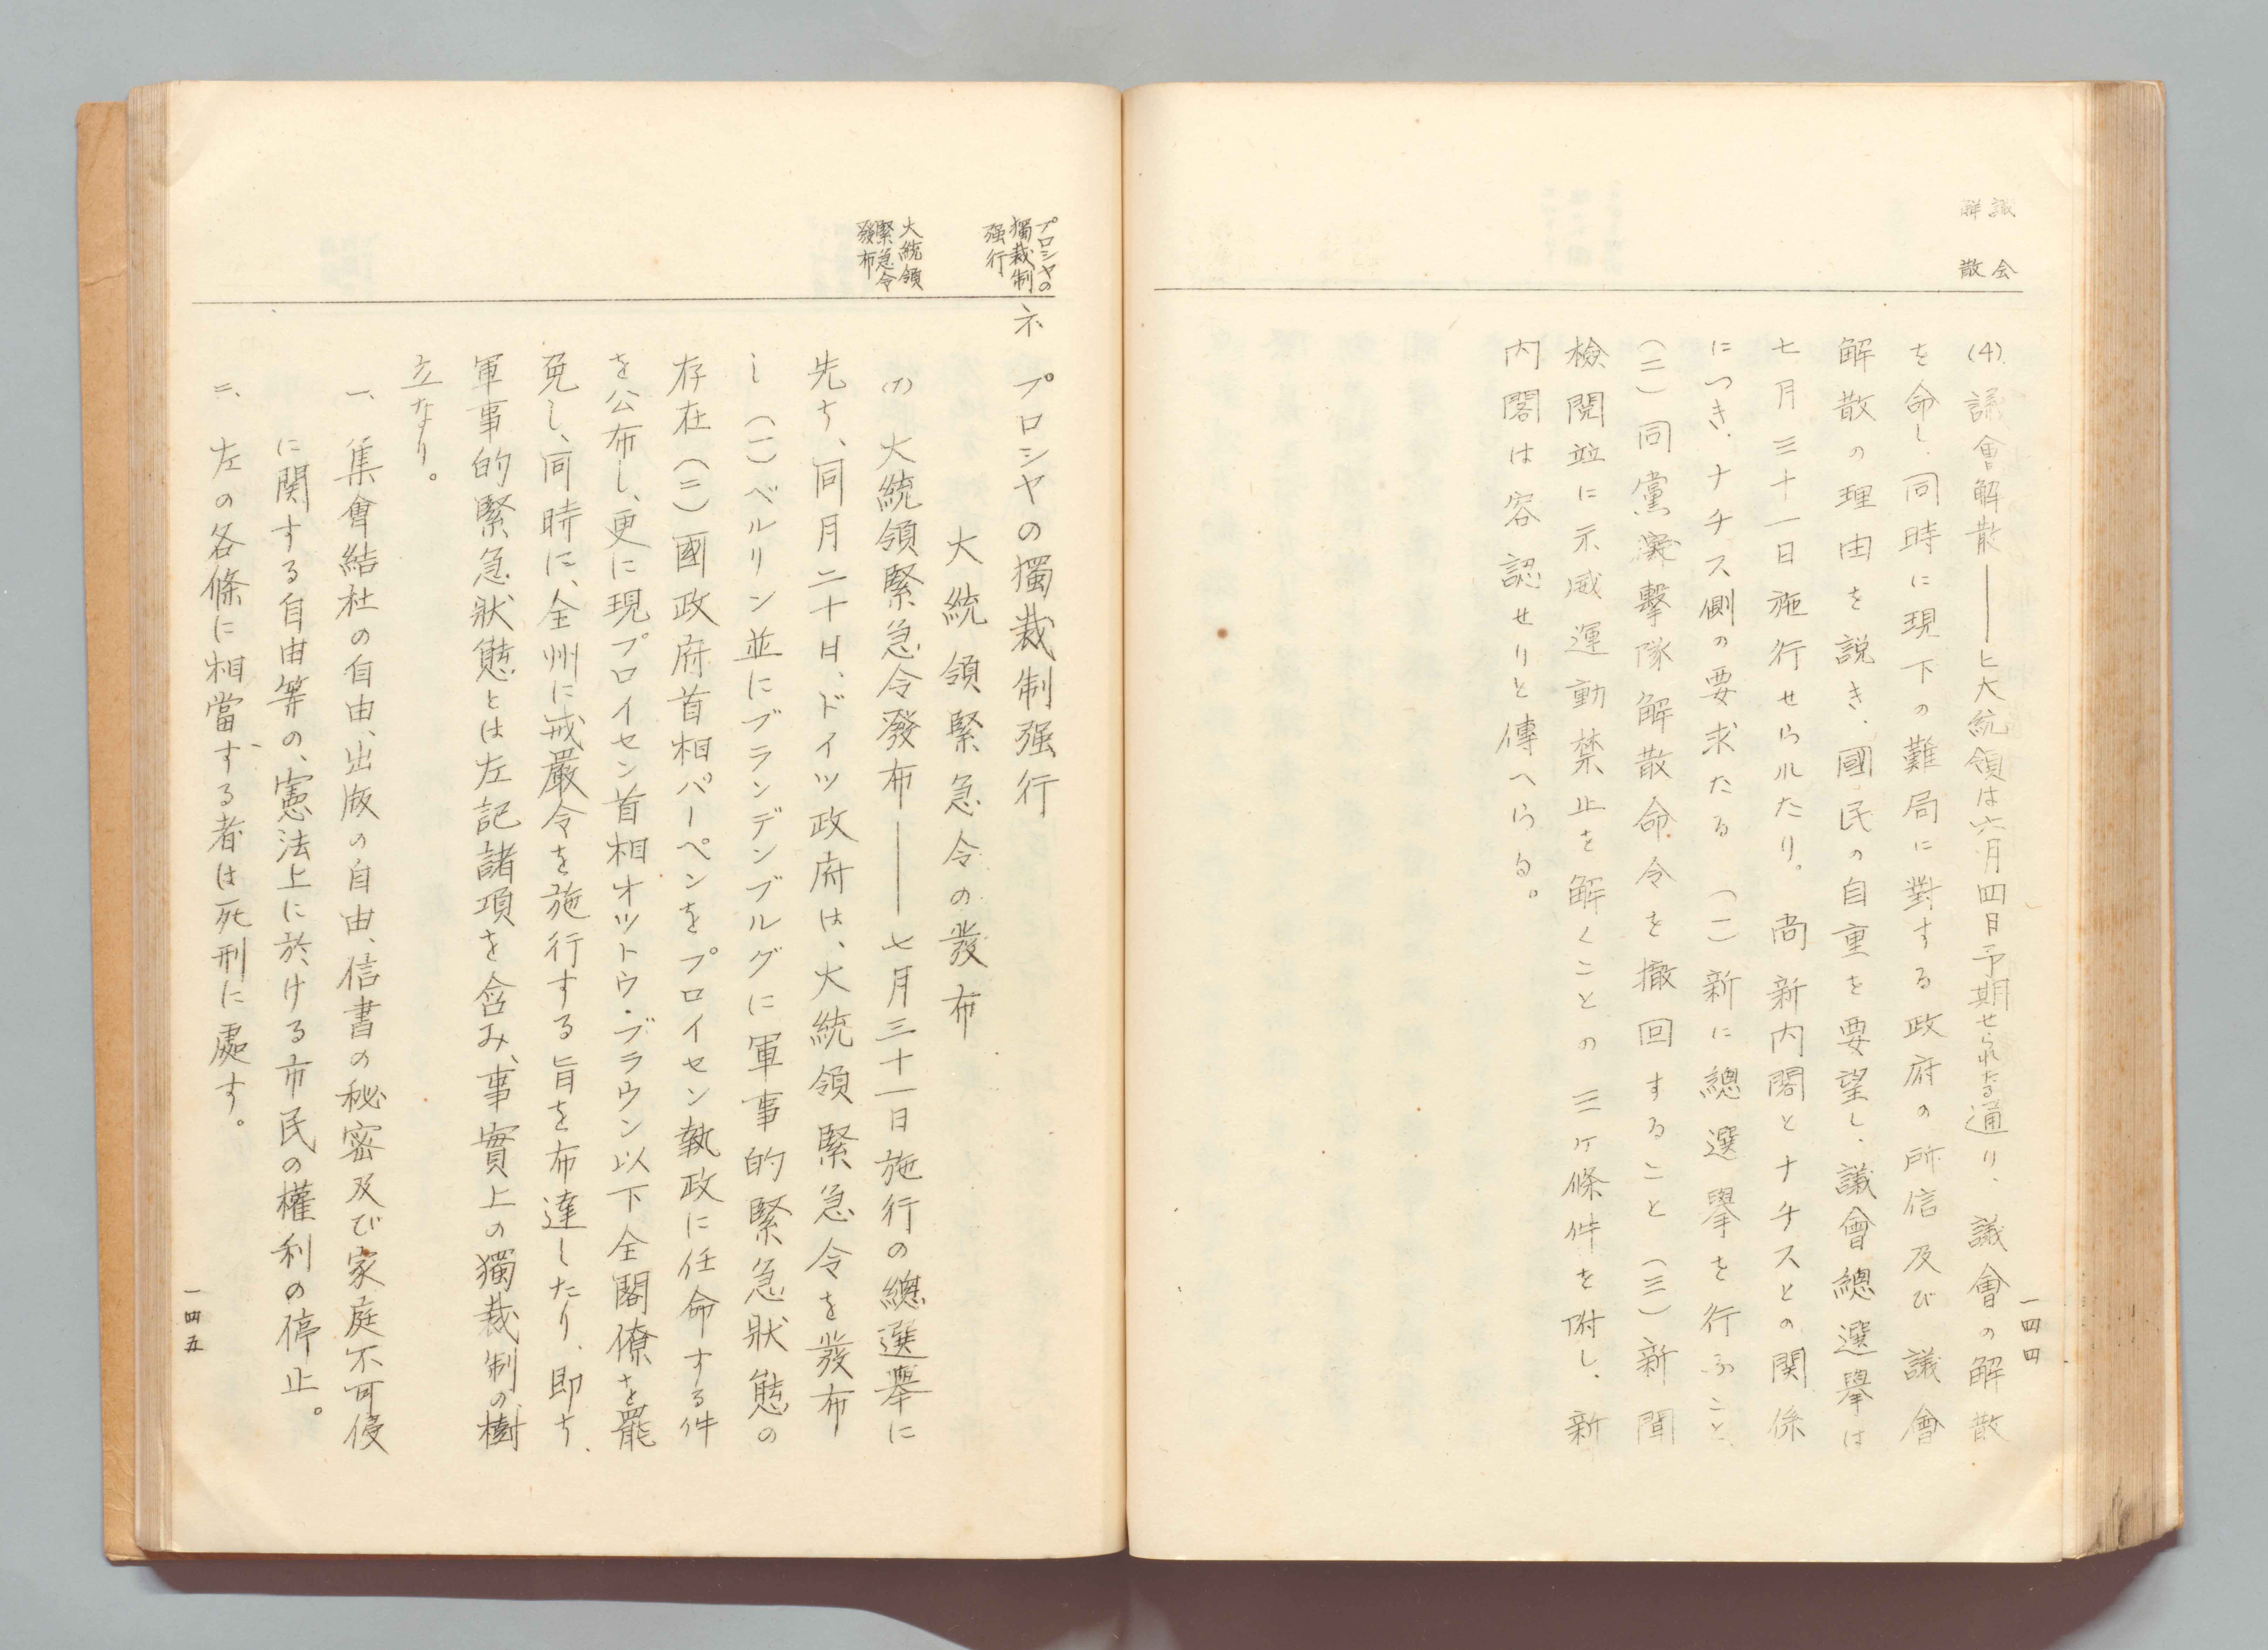 議会
解散
(4) 議會解散――ヒ大統領は六月四日予期せられたる通り、議會の解散
を命し、同時に現下の難局に對する政府の所信及び議會
解散の理由を説き、國民の自重を要望し、議會總選擧は
七月三十一日施行せらルたり。尚新内閣とナチスとの関係
につき、ナチス側の要求たる (一)新に總選擧を行ふこと、
(二)同黨突擊隊解散命令を撤回すること (三)新聞
檢閱並に示威運動禁止を解くことの三ヶ條件を附し、新
内閣は容認せりと傳へらる。
一四四
プロシヤの
獨裁制
强行
大統領
緊急令
發布
ネ プロシヤの獨裁制强行
大統領緊急令の發布
(1) 大統領緊急令發布――七月三十一日施行の總選擧に
先ち、同月二十日、ドイツ政府は、大統領緊急令を發布
し (一)ベルリン並にブランデンブルグに軍事的緊急狀態の
存在 (二)國政府首相パーペンをプロイセン執政に任命する件
を公布し、更に現プロイセン首相オットウ・ブラウン以下全閣僚を罷
免し、同時に、全州に戒嚴令を施行する旨を布達したり、即ち、
軍事的緊急狀態とは左記諸項を含み、事實上の獨裁制の樹
立なり。
一、集會結社の自由、出版の自由、信書の秘密及び家庭不可侵
に関する自由等の、憲法上に於ける市民の權利の停止。
二、左の各條に相當する者は死刑に處す。
一四五